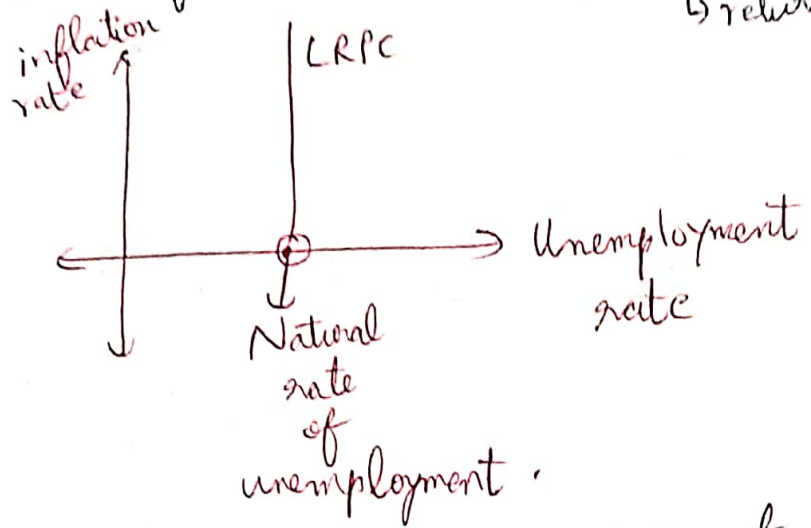 inflation
rate
LRPC
Unemployment
rate
Natural
rate
of
unemployment.